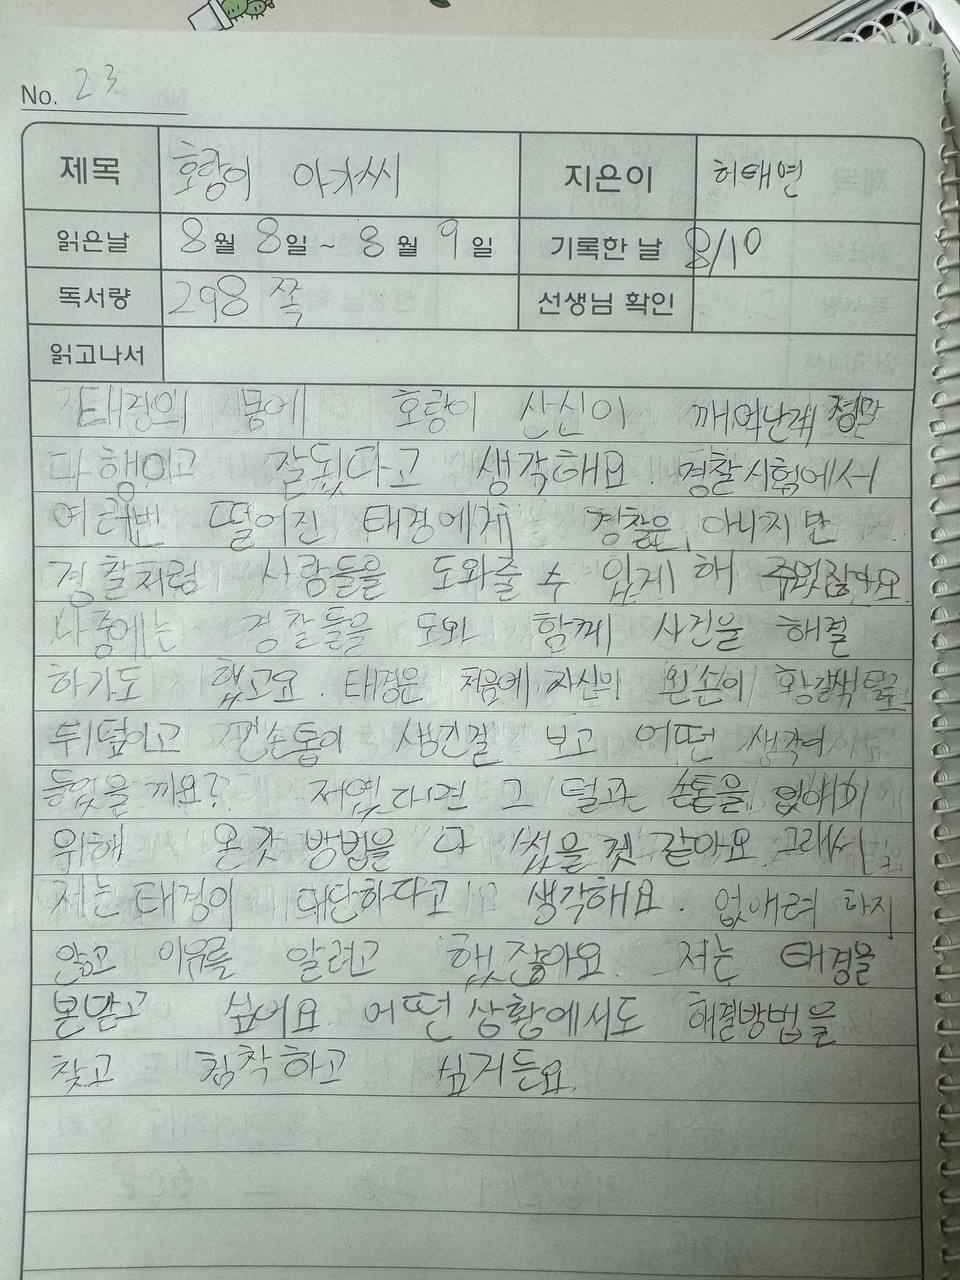 No. 23
제목 호랑이 아저씨 지은이 허태연
읽은날 8월 8일 ~ 8월 9일 기록한 날 8/10
독서량 298 쪽 선생님 확인
읽고나서
태경의 몸에 호랑이 산신이 깨어난게 정말
다행이고 잘됬다고 생각해요. 경찰시험에서
여러번 떨어진 태경에게 경찰은 아니지만
경찰처럼 사람들을 도와줄 수 있게 해 주었잖아요.
나중에는 경찰들을 도와 함께 사건을 해결
하기도 했고요. 태경은 처음에 자신의 왼손이 황갈색 털로
뒤덮이고 긴 손톱이 생긴걸 보고 어떤 생각이
들었을까요? 저였다면 그 털과 손톱을 없애기
위해 온갖 방법을 다 썼을 것 같아요. 그래서
저는 태경이 대단하다고 생각해요. 없애려 하지
않고 이유를 알려고 했잖아요. 저는 태경을
본받고 싶어요. 어떤 상황에서도 해결방법을
찾고 침착하고 싶거든요.